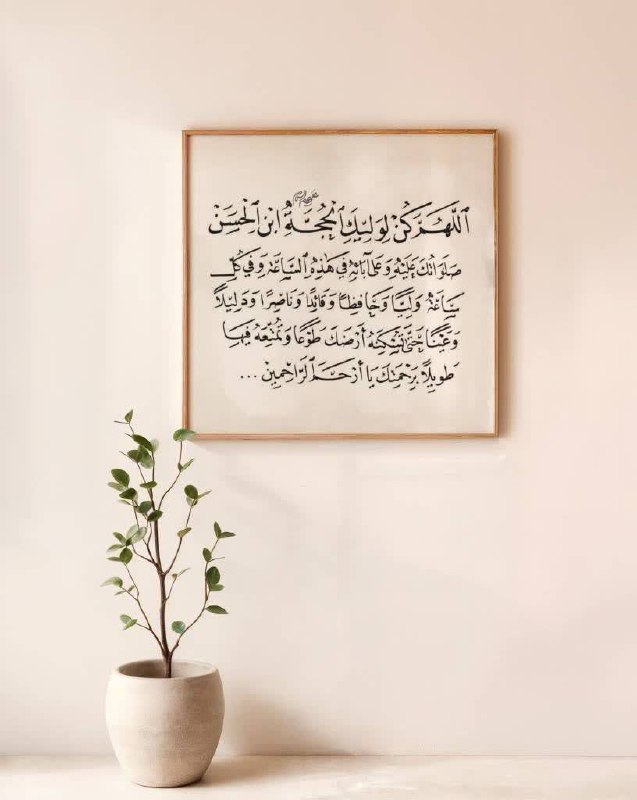 ٱللَّهُمَّ كُنْ لِوَلِيِّكَ ٱلْحُجَّةِ ٱبْنِ ٱلْحَسَنِ
صَلَوَاتُكَ عَلَيْهِ وَعَلَىٰ آبَائِهِ فِي هَٰذِهِ ٱلسَّاعَةِ وَفِي كُلِّ
سَاعَةٍ وَلِيًّا وَحَافِظًا وَقَائِدًا وَنَاصِرًا وَدَلِيلًا
وَعَيْنًا حَتَّىٰ تُسْكِنَهُ أَرْضَكَ طَوْعًا وَتُمَتِّعَهُ فِيهَا
طَوِيلًا بِرَحْمَتِكَ يَا أَرْحَمَ ٱلرَّاحِمِينَ ...